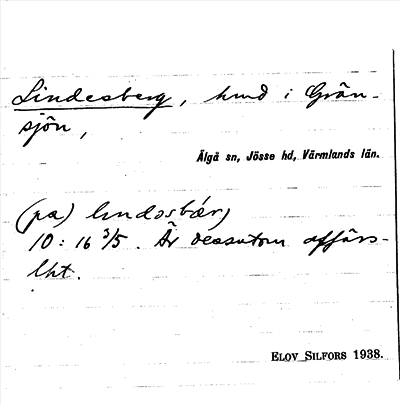 Lindesberg, hmd i Grän-
sjön,
Älgå sn, Jösse hd, Värmlands län.
(pa)
10:16 3/5. Är dessutom affärs-
lht.
ELOV SILFORS 1938.